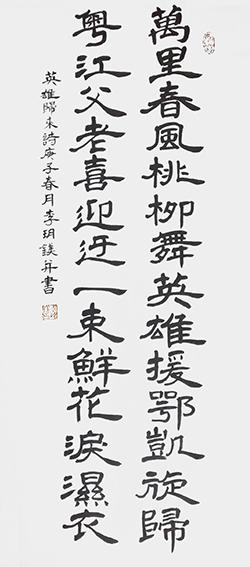 萬里春風桃柳舞英雄援鄂凱旋歸
粵江父老喜迎迓一束鮮花淚濕衣
英雄歸来詩庚子春月李玥謨并書